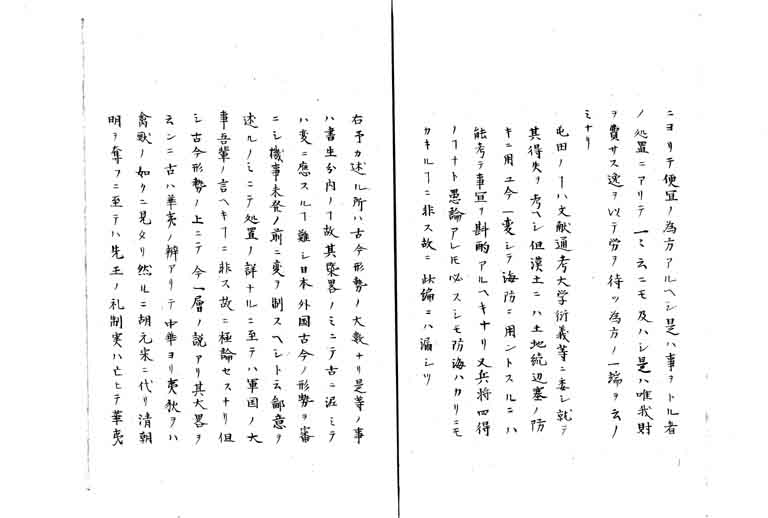 ニヨリテ便宜ノ為方アルヘシ是ハ事ヲトル者
ノ処置ニアリテ一々云ニモ及ハシ是ハ唯我財
ヲ費サス逸ヲ以テ労ヲ待ツ為方ノ一端ヲ云ノ
ミナリ
屯田ノヿハ文献通考大学衍義等ニ委シ就テ
其得失ヲ考ヘシ但漢土ニハ土地続辺塞ノ防
キニ用ユ今一変シテ海防ニ用ントスルニハ
能考テ事宜ヲ斟酌アルヘキナリ又兵将四得
ノヿナト愚論アレトモ必スシモ防海ハカリニモ
カキルヿニ非ス故ニ此編ニハ漏シツ
右予カ述ル所ハ古今形勢ノ大数ナリ是等ノ事
ハ書生分内ノヿ故其槩畧ノミニテ古ニ泥ミテ
ハ変ニ應スルヿ難シ日本外国古今ノ形勢ヲ審
ニシ機事未発ノ前ニ変ヲ制スヘシト云鄙意ヲ
述ルノミニテ処置ノ詳ナルニ至テハ軍国ノ大
事吾輩ノ言ヘキヿニ非ス故ニ極論セスナリ但
シ古今形勢ノ上ニテ今一層ノ説アリ其大畧ヲ
云ンニ古ハ華夷ノ辨アリテ中華ヨリ夷狄ヲハ
禽獣ノ如クニ見タリ然ルニ胡元宋ニ代リ清朝
明ヲ奪フニ至テハ先王ノ礼制実ハ亡ヒテ華夷